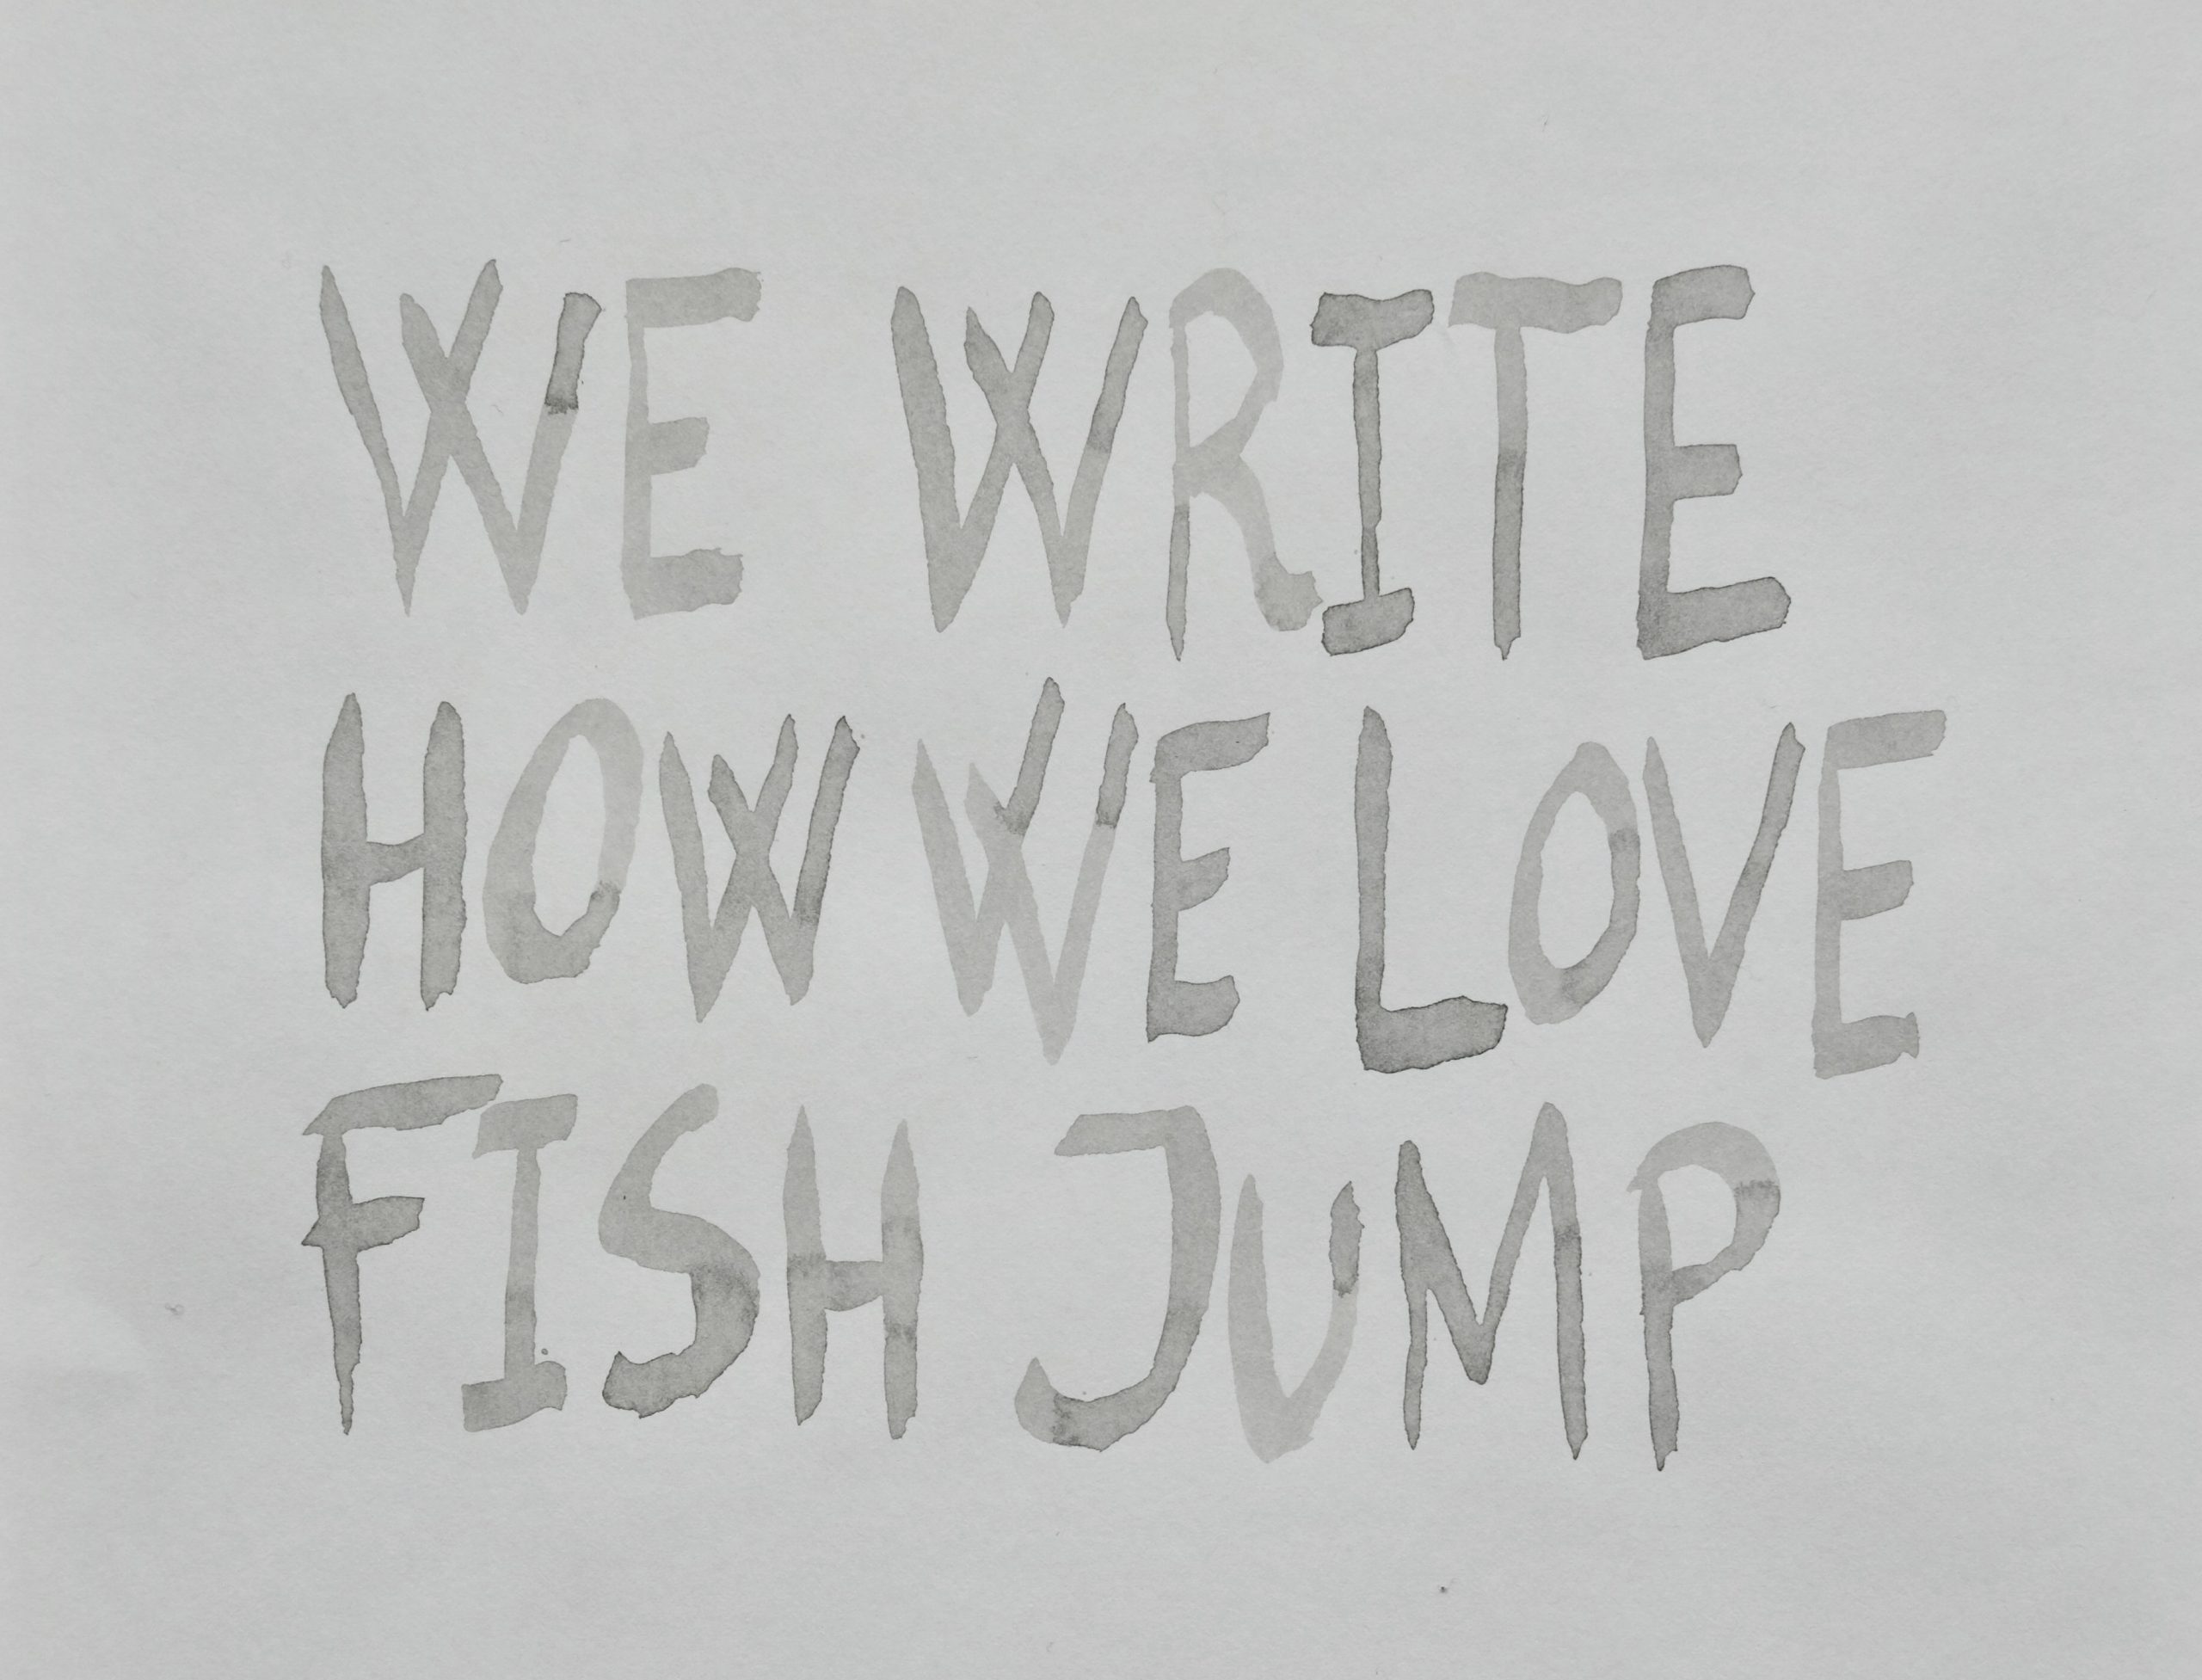 WE WRITE
HOW WE LOVE
FISH JUMP